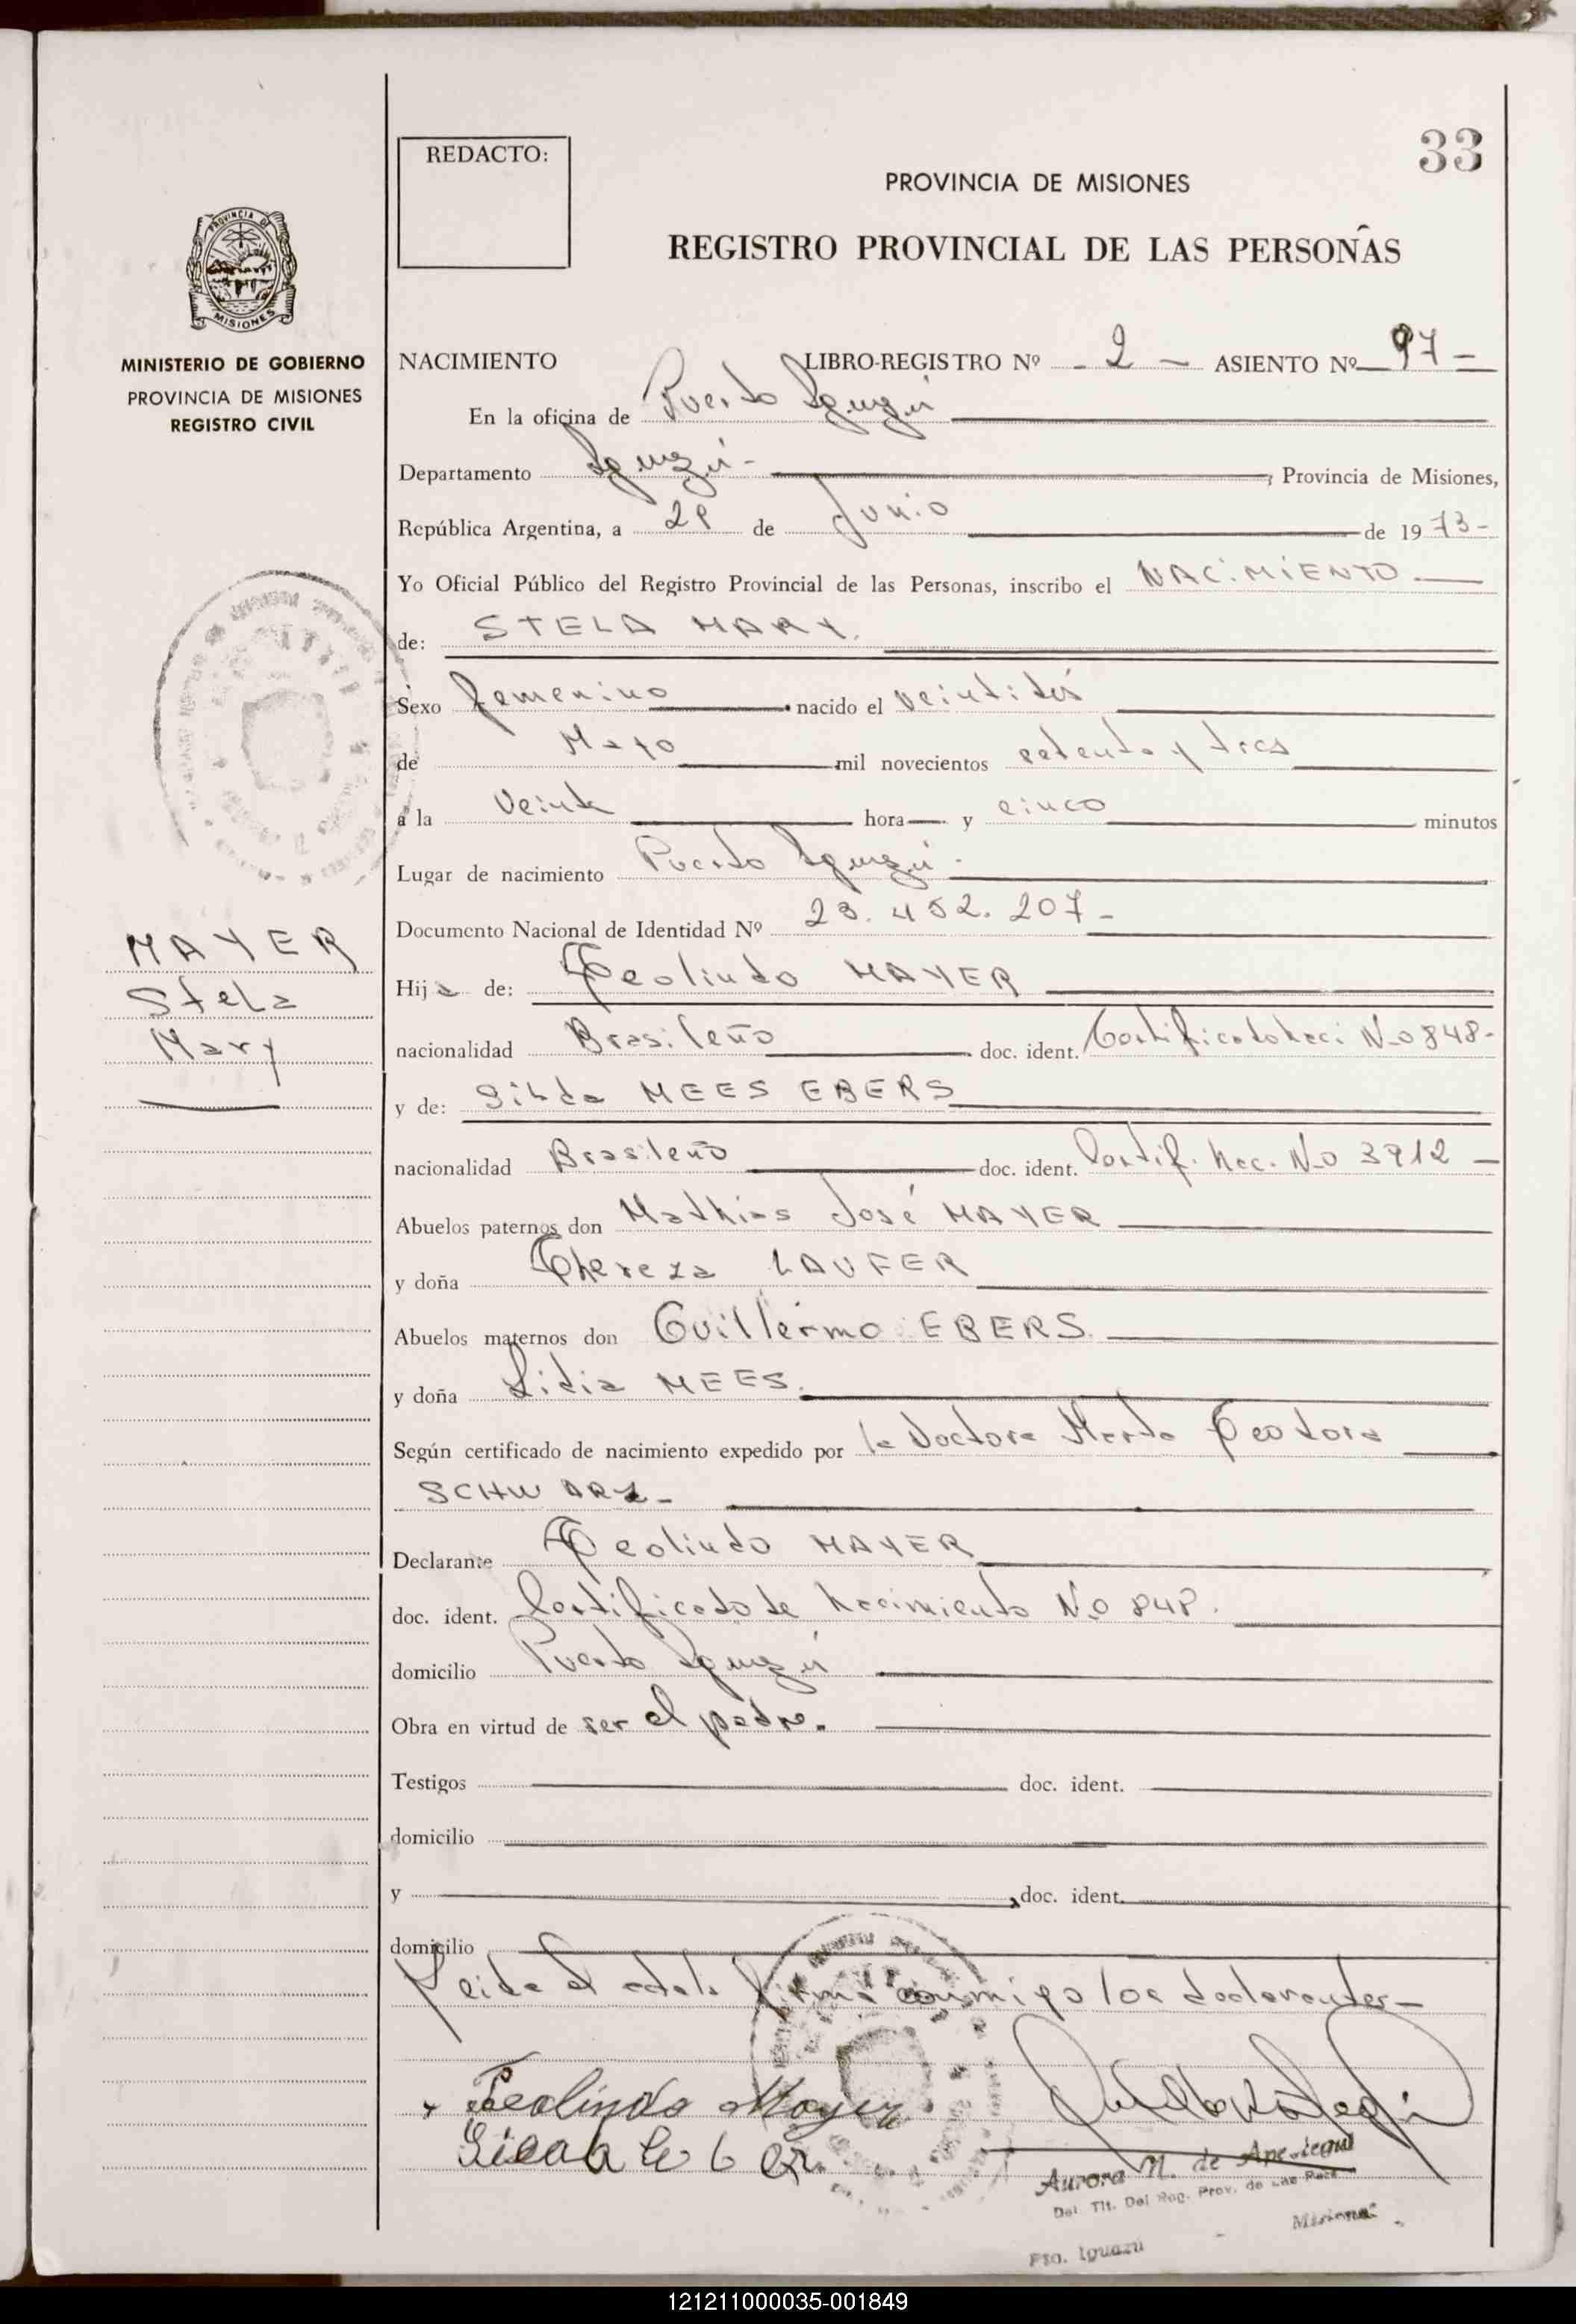 33
REDACTO:
PROVINCIA DE MISIONES
REGISTRO PROVINCIAL DE LAS PERSONAS
PROVINCIA DE
MISIONES
MINISTERIO DE GOBIERNO
PROVINCIA DE MISIONES
REGISTRO CIVIL
NACIMIENTO LIBRO-REGISTRO Nº 2 - ASIENTO Nº 97 -
En la oficina de Puerto Iguazú
Departamento Iguazú - , Provincia de Misiones,
República Argentina, a 28 de Junio de 1973-
Yo Oficial Público del Registro Provincial de las Personas, inscribo el NACIMIENTO
de: STELA MARY.
Sexo femenino nacido el
de Mayo mil novecientos setenta y tres
a la veinte hora y cinco minutos
Lugar de nacimiento Puerto Iguazú -
Documento Nacional de Identidad Nº 23. 452. 207-
MAYER
Stela
Mary
Hija de: Teolindo MAYER
nacionalidad Brasileño doc. ident. Certificado Naci No 848-
y de: Silda MEES EBERS
nacionalidad Brasileño doc. ident. Certif. Nac. No 3912 -
Abuelos paternos don Mathias José MAYER
y doña Thereza LAUFER
Abuelos maternos don Guillermo EBERS.
y doña Lidia MEES.
Según certificado de nacimiento expedido por la Doctora Marta Teodora
SCHWARZ-
Declarante Teolindo MAYER
doc. ident. Certificado de Nacimiento No 848.
domicilio Puerto Iguazú
Obra en virtud de ser el padre.
Testigos doc. ident.
domicilio
y , doc. ident.
domicilio
Leida el acta la firma conmigo los declarantes-
Teolindo Mayer
Aurora N. de
Del. Tit. Del Reg. Prov. de Las Pers.
Misiones
Pto. Iguazu
121211000035-001849